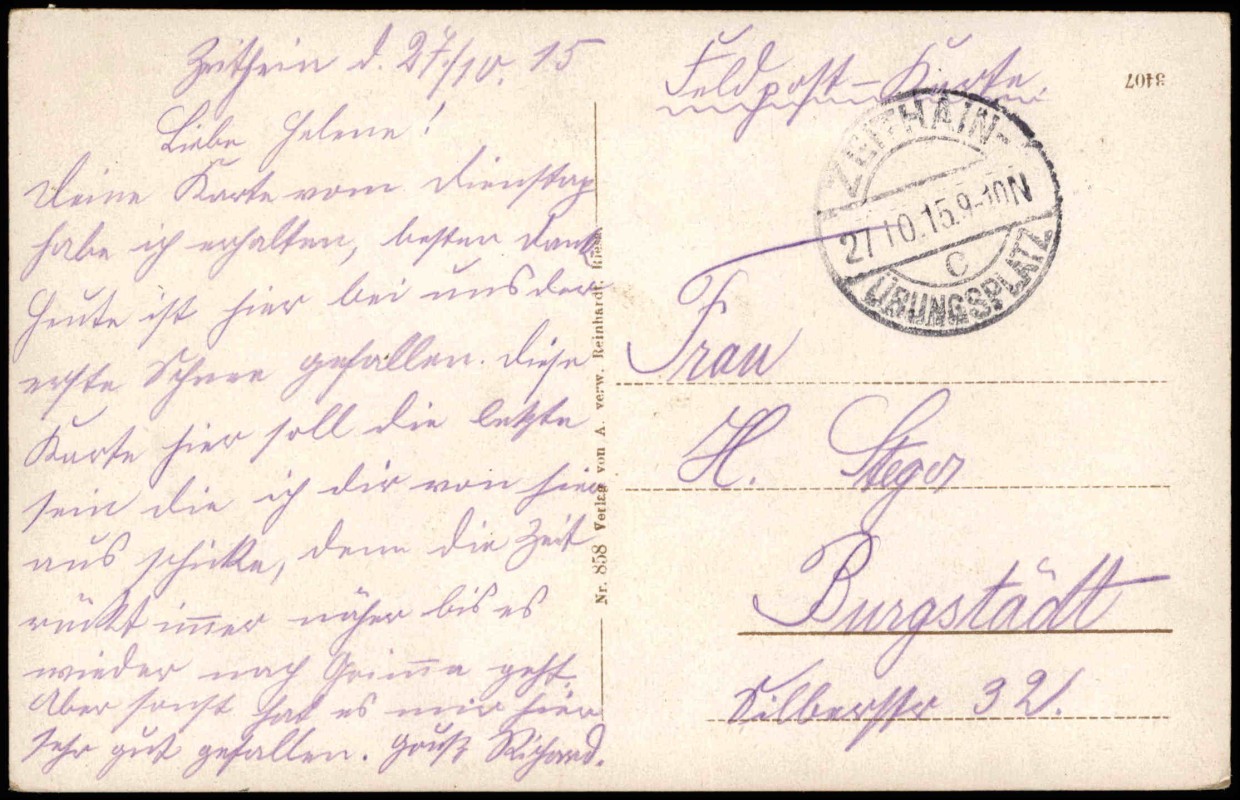 Zeithein d. 27./10. 15
Liebe Helene!
Deine Karte vom Dienstag
habe ich erhalten, besten Dank
Heute ist hier bei uns der
erste Schnee gefallen. Diese
Karte hier soll die letzte
sein die ich dir von hier
aus schicke, denn die Zeit
rückt im̅er näher bis es
wieder nach Grim̅a geht.
Aber sonst hat es mir hier
sehr gut gefallen. Gruß Richard.
Nr. 858 Verlag von A. verw. Reinhardt, Riesa
Feldpost-Karte
3407
ZEITHAIN-
27 10.15.9-10N
C
ÜBUNGSPLATZ
Frau
H. Steger
Burgstädt
Silberstr 32.